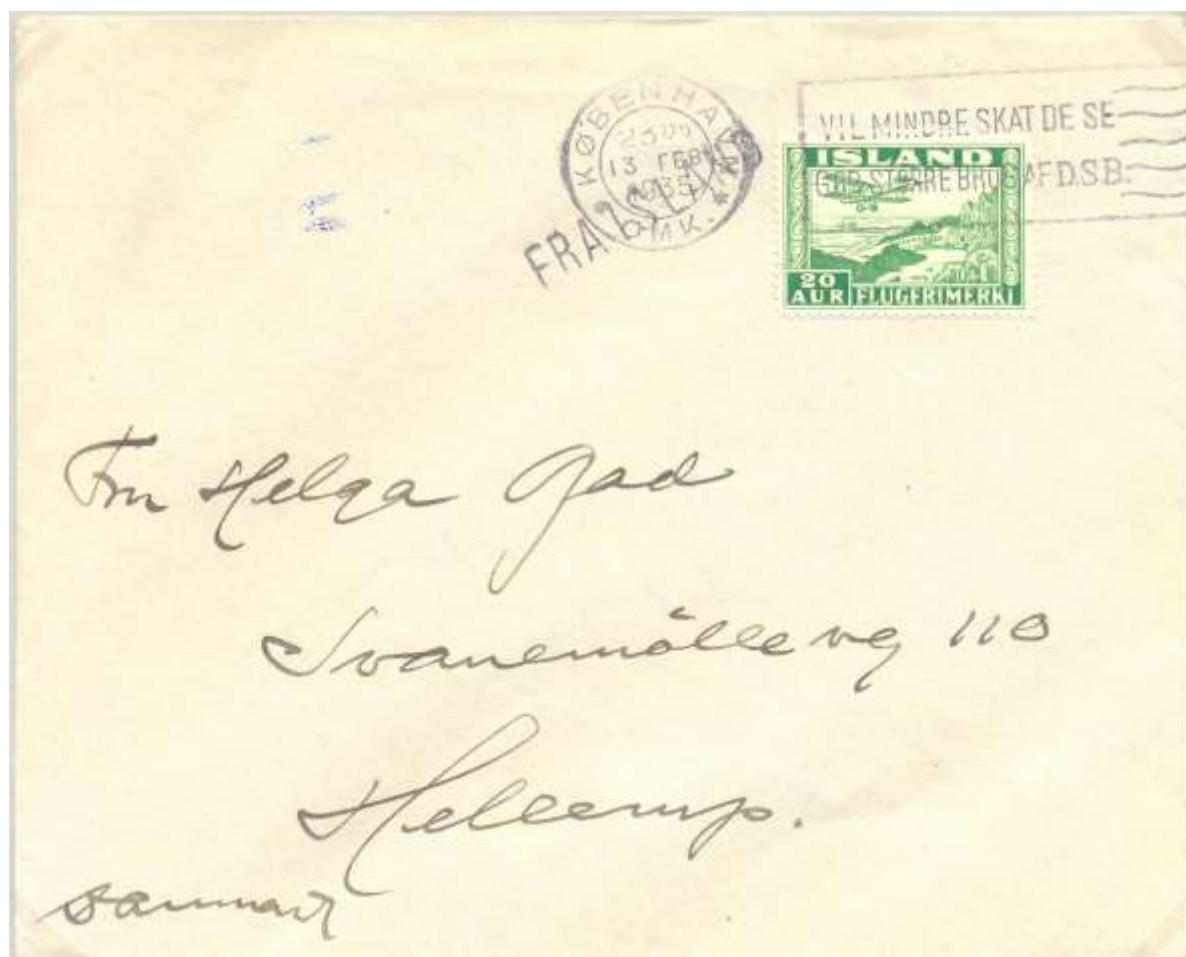 KØBENHAVN
13 FEB
1935
OMK.
FRA ISLAND
VIL MINDRE SKAT DE SE
GØR STØRRE BRUG AF D.S.B.
ISLAND
20
AUR FLUGFRIMERKI
Fru Helga Gad
Svanemölleveg 110
Hellerup.
Danmark